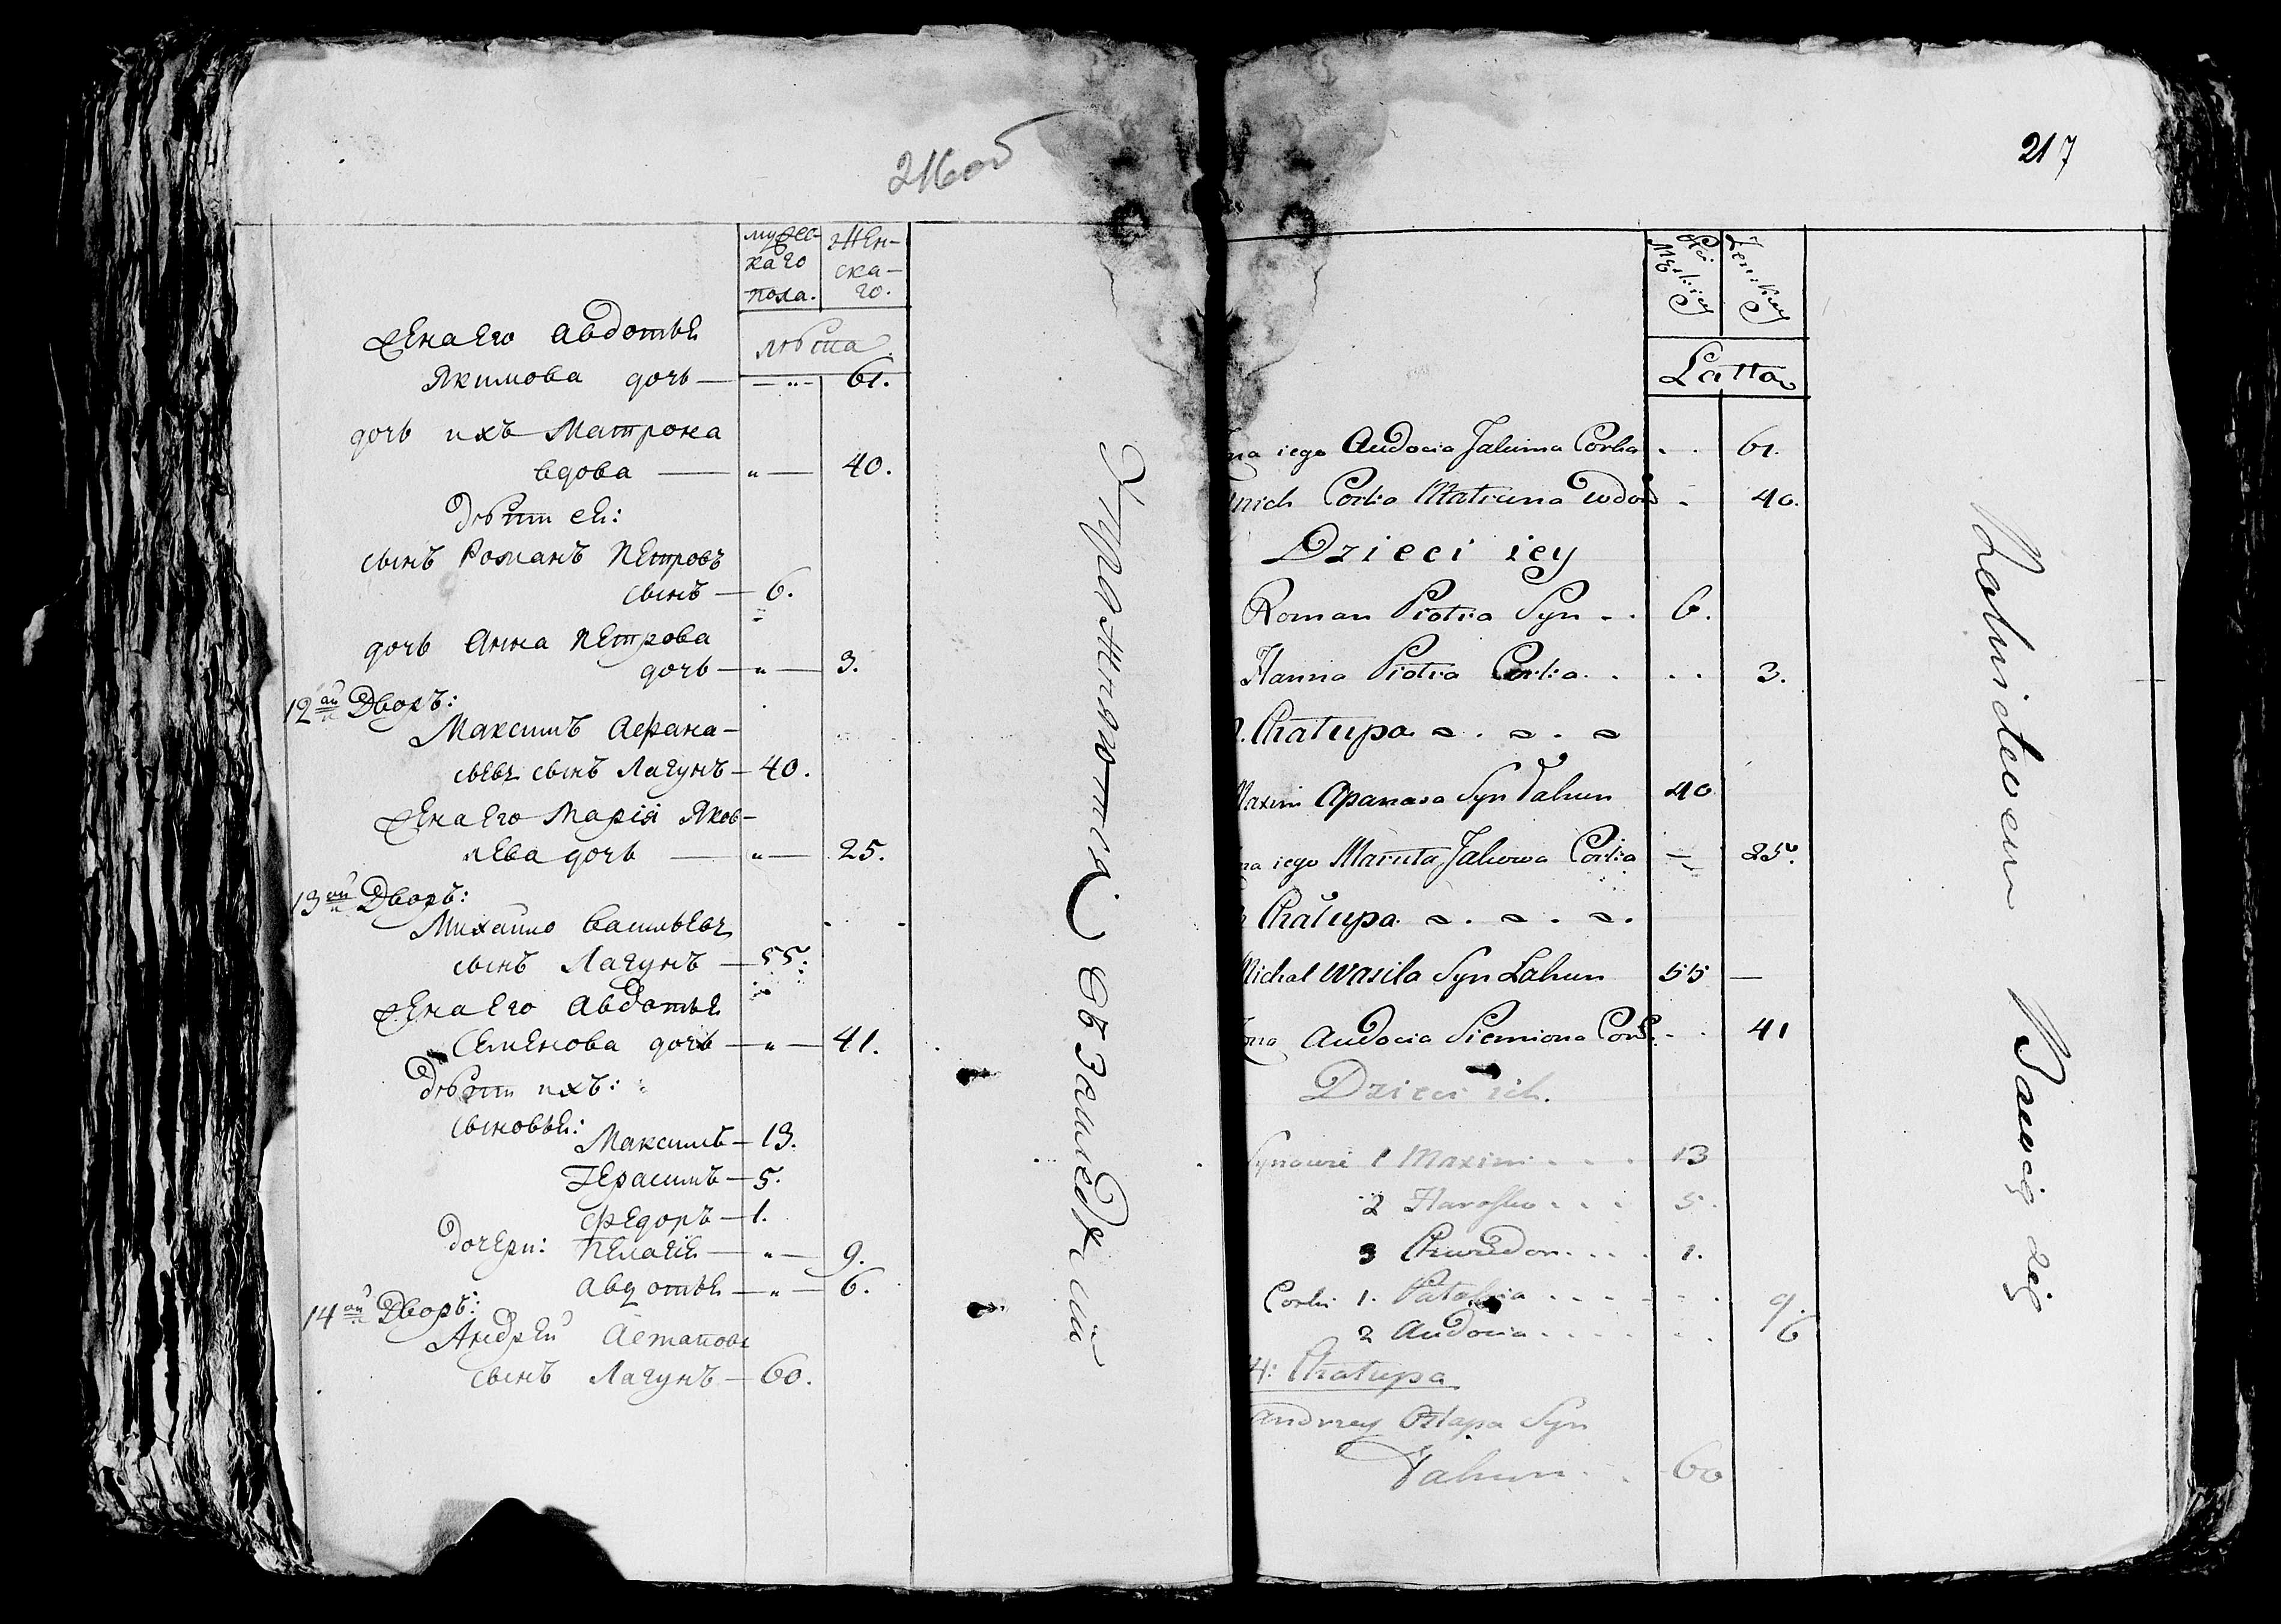 216 об
мужес-
каго
пола.
жен-
ска-
го.
лѣта
жена его Авдотья
Якимова дочь — „ — 61.
дочь ихъ Матрона
вдова — „ — 40.
дѣти ея:
сынъ Романъ Петровъ
сынъ — 6.
дочь Анна Петрова
дочь — „ — 3.
12ый Дворъ:
Максимъ Афана-
сьевъ сынъ Лагунъ — 40.
жена его Марія Яков-
лева дочь — „ — 25.
13ый Дворъ:
Михайло Васильевъ
сынъ Лагунъ — 55.
жена его Авдотья
Семенова дочь — „ — 41.
дѣти ихъ:
сыновья: Максимъ — 13.
Герасимъ — 5.
Федоръ — 1.
дочери: Пелагія — „ — 9.
Авдотья — „ — 6.
14ый Дворъ:
Андрей Астаповъ
сынъ Лагунъ — 60.
Упражняются въ Земледѣліи
217
Płci Męskiey
Żenskiey
Latta
na iego Audocia Jakima Corka . . 61.
nich Corka Matruna wdowa - 40.
Dzieci iey
Roman Piotra Syn - . 6.
Hanna Piotra Corka . . . . 3.
Chałupa
Maxim Apanasa Syn Łahun 40
na iego Maruta Jakowa Corka — 25.
Chałupa
Michał Wasila Syn Łahun 55 —
ona Audocia Siemiona Cork. - . 41
Dzieci ich.
Synowie 1 Maxim . . . 13
2 Harasko . . . 5.
3 Chwiedor . . . . 1.
Corki 1. Patahia . . . . . . 9.
2 Audocia . . . . . . 6
14: Chałupa
Andrzey Ostapa Syn
Łahun . . 60
Rolnictwem Bawią się